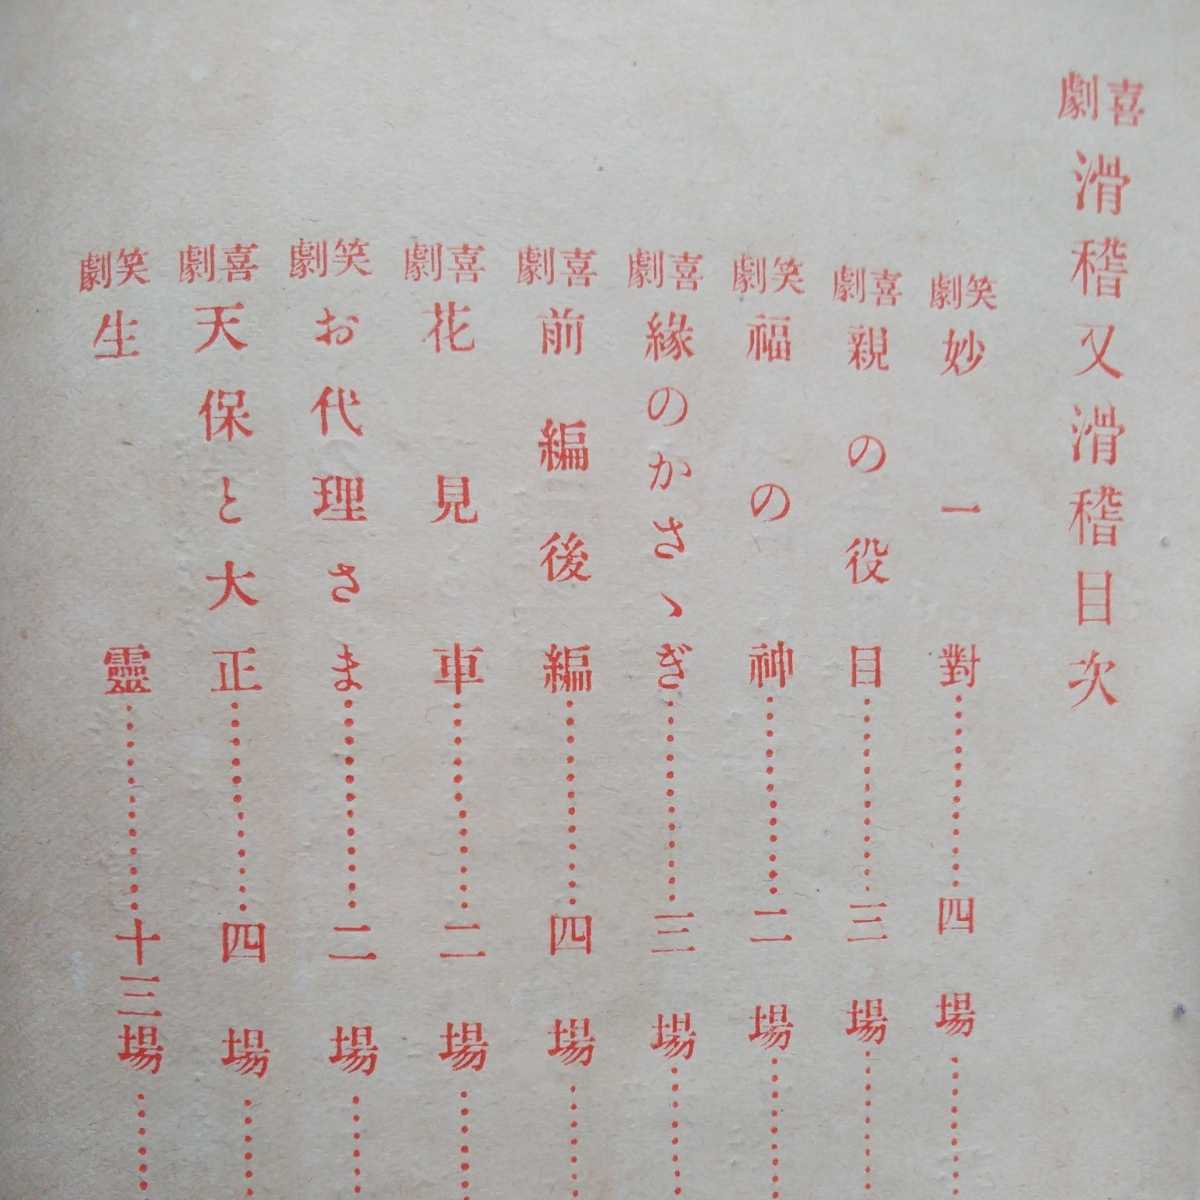 喜劇 滑稽又滑稽目次
笑劇 妙一對…………四場…………
喜劇 親の役目…………三場…………
笑劇 福の神…………二場…………
喜劇 緣のかさゝぎ…………三場…………
喜劇 前編後編…………四場…………
喜劇 花見車…………二場…………
笑劇 お代理さま…………二場…………
喜劇 天保と大正…………四場…………
笑劇 生靈…………十三場…………